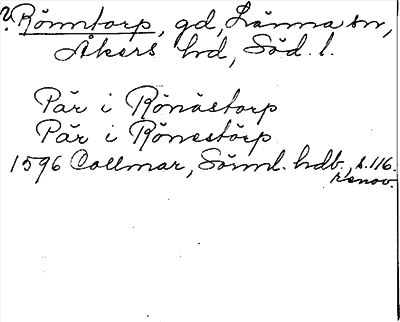 ? Rönntorp, gd, Länna sn,
Åkers hd, Söd. l.
Pär i Rönästorp
Pär i Rönestörp
1596 Collmar, Sörml. hdb., s. 116.
renov.